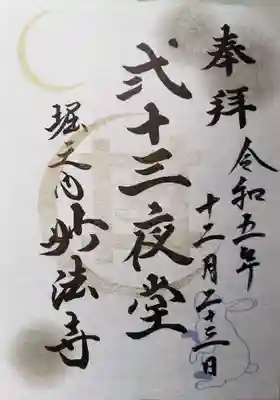 奉拝
令和五年
十二月二十三日
弐十三夜堂
堀之内妙法寺